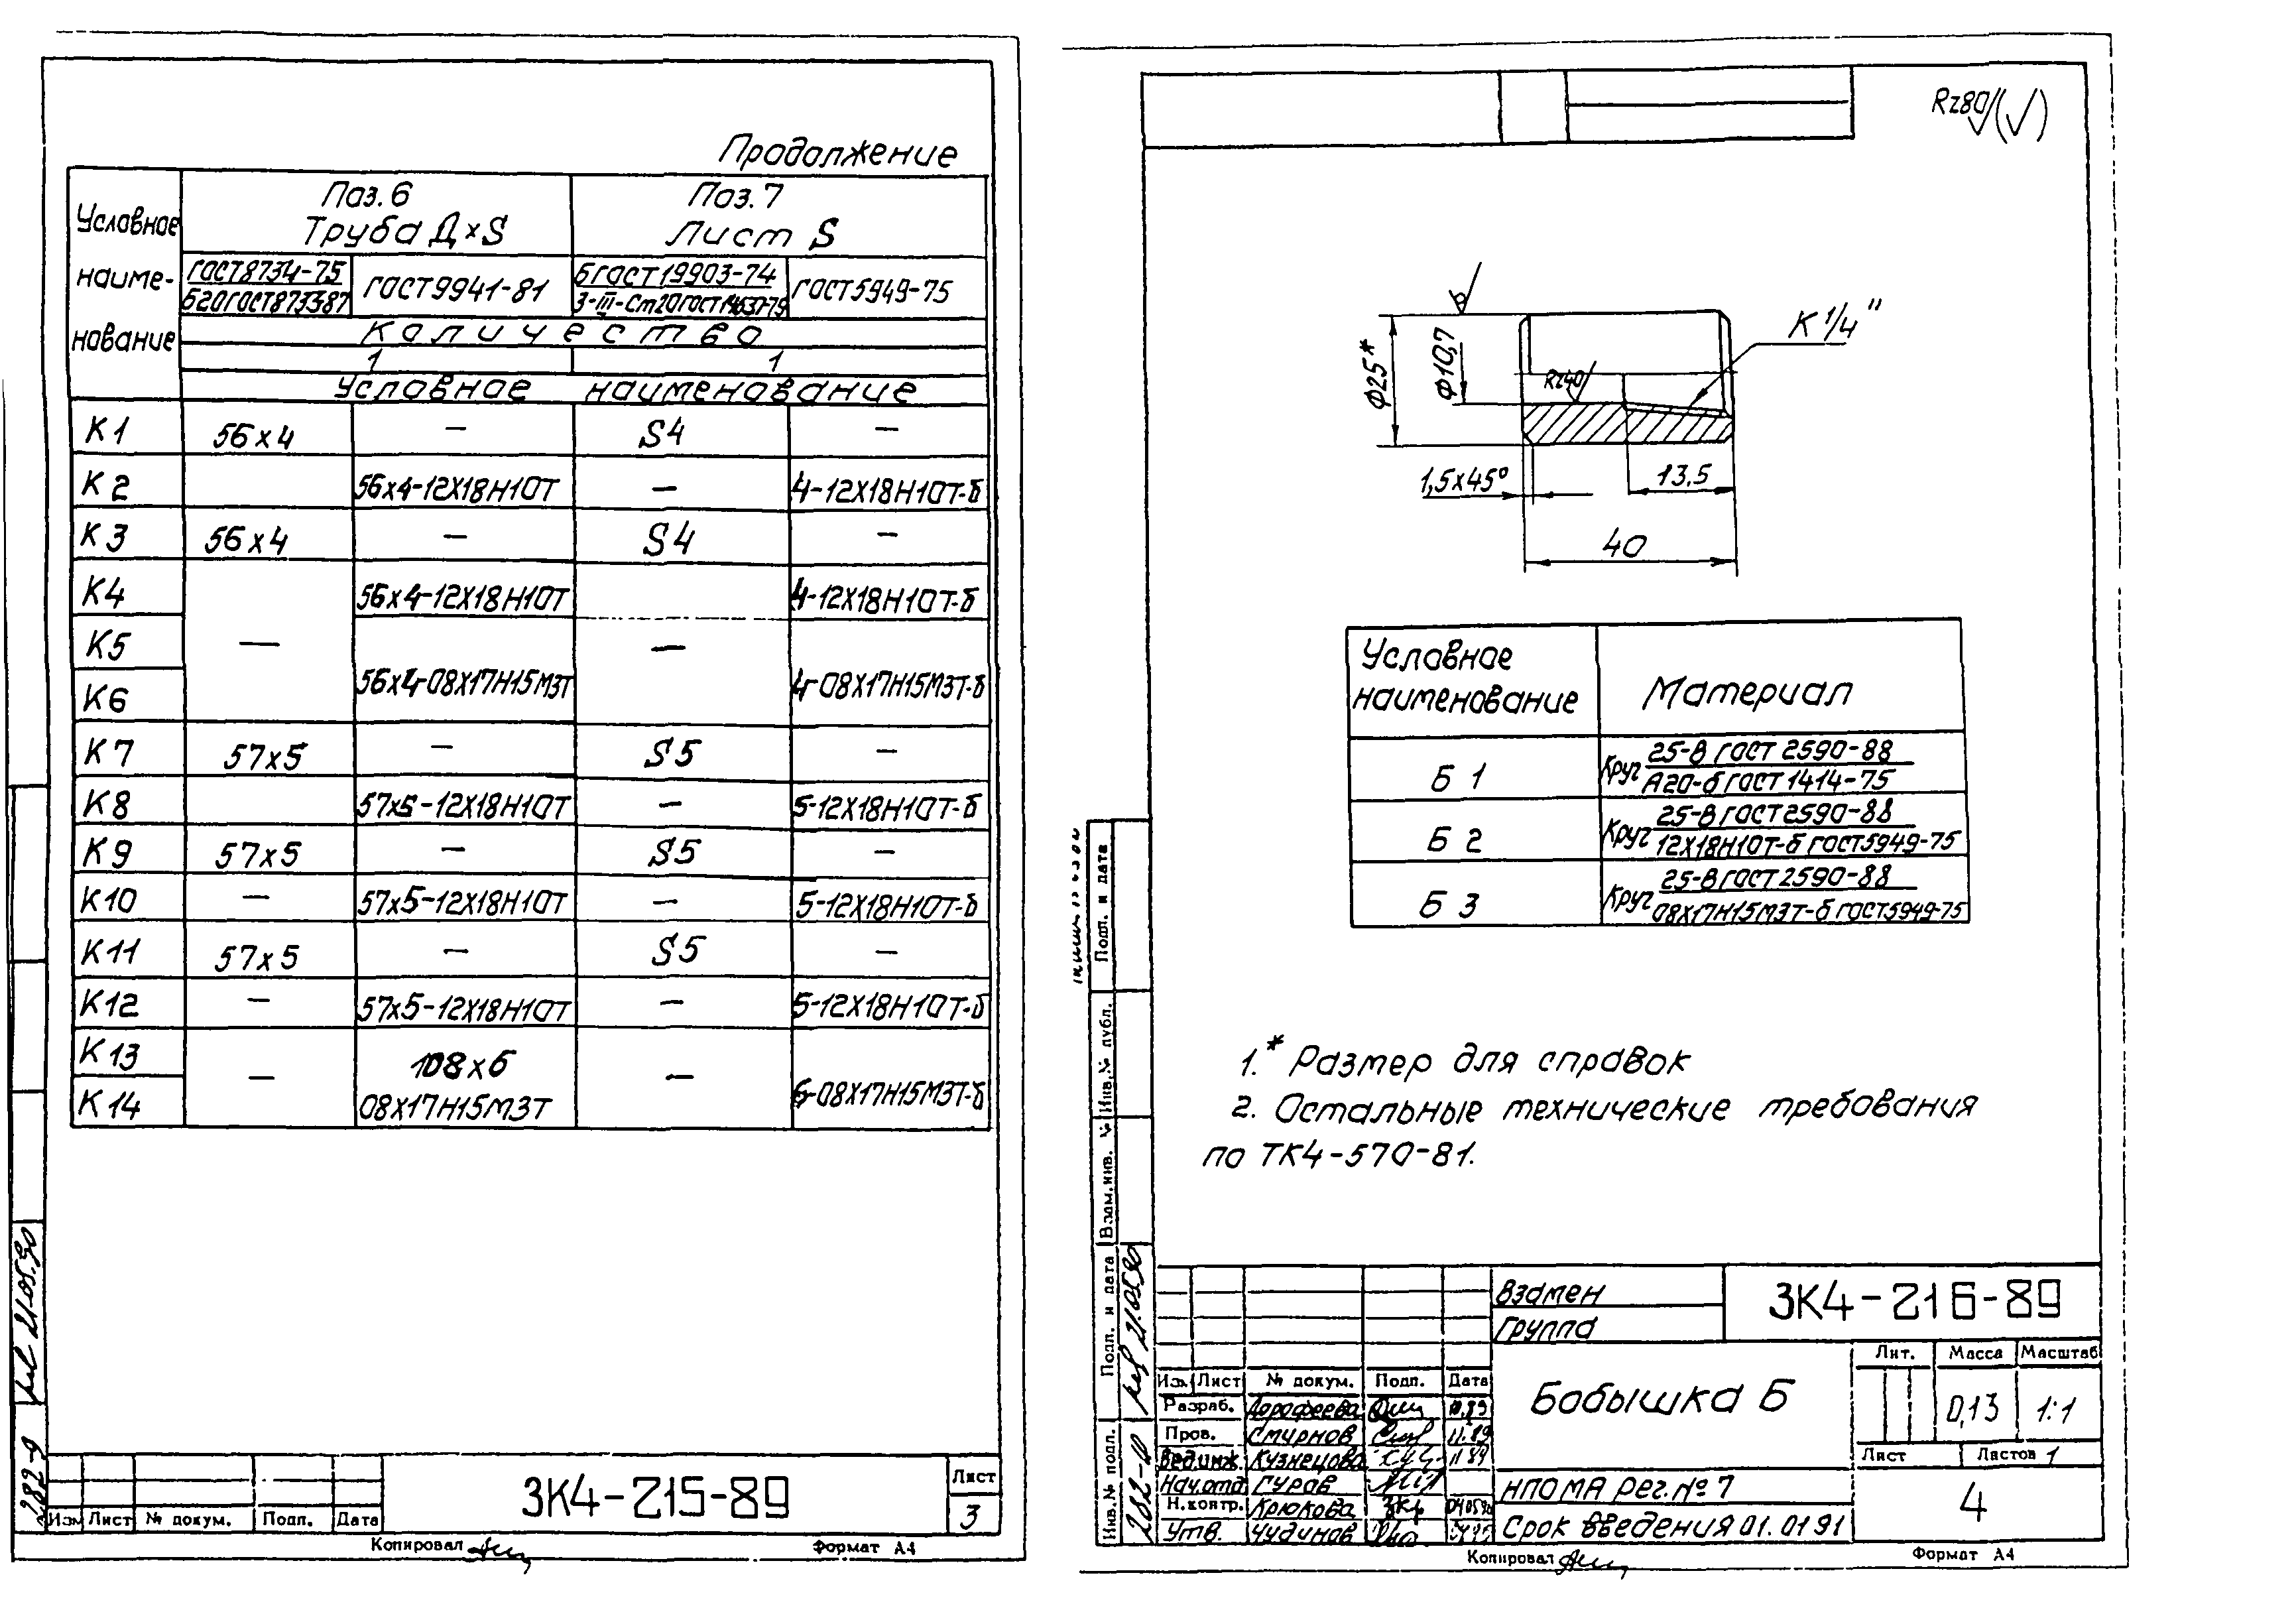 Продолжение
Условное наименование
Поз. 6
Труба Д×S
Поз. 7
Лист S
ГОСТ 8734-75
Б20 ГОСТ 8733 87
ГОСТ 9941-81
Б ГОСТ 19903-74
3-III-Ст20 ГОСТ 14637-79
ГОСТ 5949-75
Количество
1 1
Условное наименование
К1 56×4 — S4 —
К2 56×4-12Х18Н10Т — 4-12Х18Н10Т-б
К3 56×4 — S4 —
К4 56×4-12Х18Н10Т 4-12Х18Н10Т-б
К5 — —
К6 56×4-08Х17Н15М3Т 4-08Х17Н15М3Т-б
К7 57×5 — S5 —
К8 57×5-12Х18Н10Т — 5-12Х18Н10Т-б
К9 57×5 — S5 —
К10 — 57×5-12Х18Н10Т — 5-12Х18Н10Т-б
К11 57×5 — S5 —
К12 — 57×5-12Х18Н10Т — 5-12Х18Н10Т-б
К13 — 108×6 — 6-08Х17Н15М3Т-б
К14 08Х17Н15М3Т
21.05.90
Изм Лист № докум. Подп. Дата
ЗК4-215-89
Лист
3
Копировал
Формат А4
Rz80 (√)
Ф25*
Ф10,7
Rz40
К 1/4"
1,5×45°
13,5
40
Условное наименование
Материал
Б 1 Круг 25-В ГОСТ 2590-88
А20-б ГОСТ 1414-75
Б 2 Круг 25-В ГОСТ 2590-88
12Х18Н10Т-б ГОСТ 5949-75
Б 3 Круг 25-В ГОСТ 2590-88
08Х17Н15М3Т-б ГОСТ 5949-75
1.* Размер для справок
2. Остальные технические требования
по ТК4-570-81.
Подп. и дата
Инв.№ дубл.
Взам.инв. №
Подп. и дата
21.05.90
Инв.№ подл.
Взамен
Группа
ЗК4-216-89
Изм Лист № докум. Подп. Дата
Разраб. Дорофеева
Пров. Смирнов 11.89
Вед.инж. Кузнецова 11 89
Нач.отд Гуров
Н.контр. Крюкова
Утв. Чудинов
Бобышка Б
Лит. Масса Масштаб
0,13 1:1
Лист Листов 1
НПОМА рег. № 7
Срок введения 01.01 91
4
Копировал
Формат А4